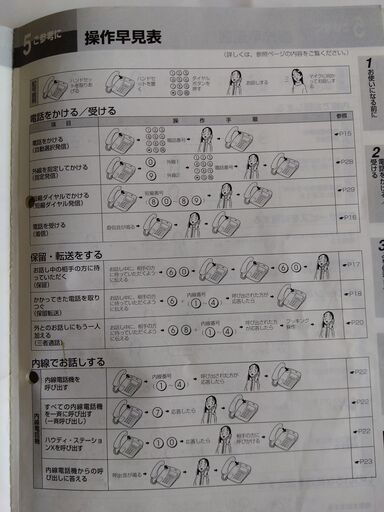 5 ご参考に 操作早見表
(詳しくは、参照ページの内容をご覧ください。)
ハンドセットを取りあげる
ハンドセットを置く
ダイヤルボタンを押す
お話しする
マイクに向かってお話しする
電話をかける／受ける
項目 操作手順 参照
電話をかける
(自動選択発信)
電話番号
P15
外線を指定してかける
(指定発信)
0 外線1
9 外線2
電話番号
P28
短縮ダイヤルでかける
(短縮ダイヤル発信)
短縮番号
8 0 8 9
P29
電話を受ける
(着信)
着信音が鳴る
P16
保留・転送をする
お話し中の相手の方に待っていただく
(保留)
お話し中に、相手の方に待っていただくように伝える
6 0
6 0
P17
かかってきた電話を取りつぐ
(保留転送)
お話し中に、相手の方に待っていただくように伝える
6 内線番号 1~4
呼び出された方が応答したら
P18
外とのお話しにもう一人加える
(三者通話)
6 8 内線番号 1~4
呼び出された方が応答したら
フッキング操作
P20
内線でお話しする
内線電話機
内線電話機を呼び出す
内線番号
1~4
呼び出された方が応答したら
P22
すべての内線電話機を一斉に呼び出す
(一斉呼び出し)
7 応答したら
P22
ハウディ・ステーションXを呼び出す
1 0 応答したら
相手の方に呼びかける
P22
内線電話機からの呼び出しに答える
呼出音が鳴る
P23
1 お使いになる前に
2 電話をかける 受ける
3